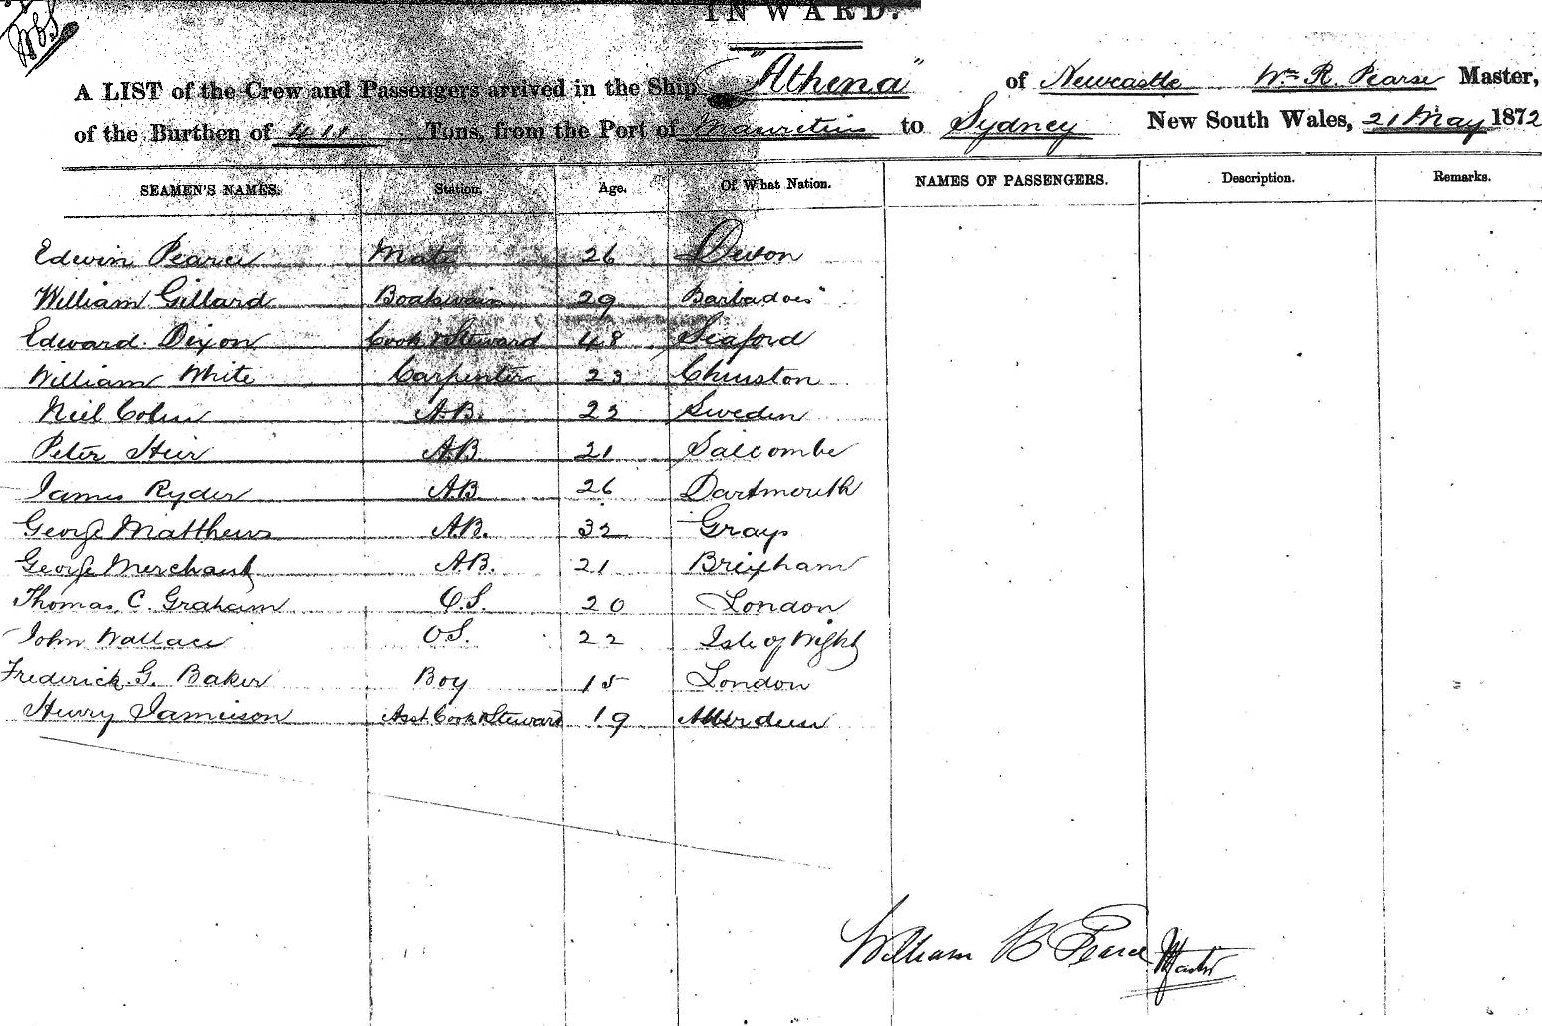 INWARD.
A LIST of the Crew and Passengers arrived in the Ship "Athena" of Newcastle Wm R. Pearse Master,
of the Burthen of 411 Tons, from the Port of Mauritius to Sydney New South Wales, 21 May 1872
SEAMEN'S NAMES. Station. Age. Of What Nation. NAMES OF PASSENGERS. Description. Remarks.
Edwin Pearce Mate 26 Devon
William Gillard Boatswain 29 Barbadoes
Edward Dixon Cook & Steward 48 Seaford
William White Carpenter 23 Churston
Neil A.B. 22 Sweden
Peter Heir A.B. 21 Salcombe
James Ryder A.B 26 Dartmouth
George Matthews A.B. 32 Grays
George Merchant A.B. 21 Brixham
Thomas C. Graham O.S. 20 London
John Wallace O.S. 22 Isle of Wight
Frederick G. Baker Boy 15 London
Henry Jamieson Asst Cook & Steward 19 Aberdeen
William R Pearce Master